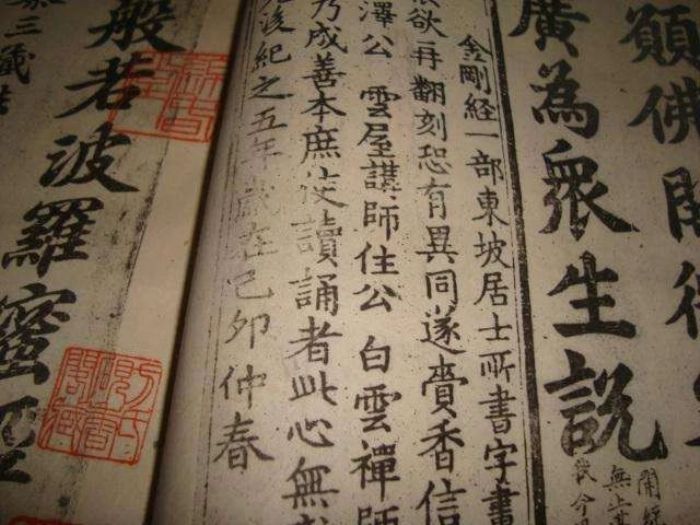 願佛開微
廣為衆生說
開經
無上甚
我今
金剛経一部東坡居士所書字畫
欲再翻刻恐有異同遂賫香信
澤公 雲屋講師住公 白雲禪師
乃成善本庶使讀誦者此心無
後紀之五年歲在己卯仲春
般若波羅蜜經
三藏法